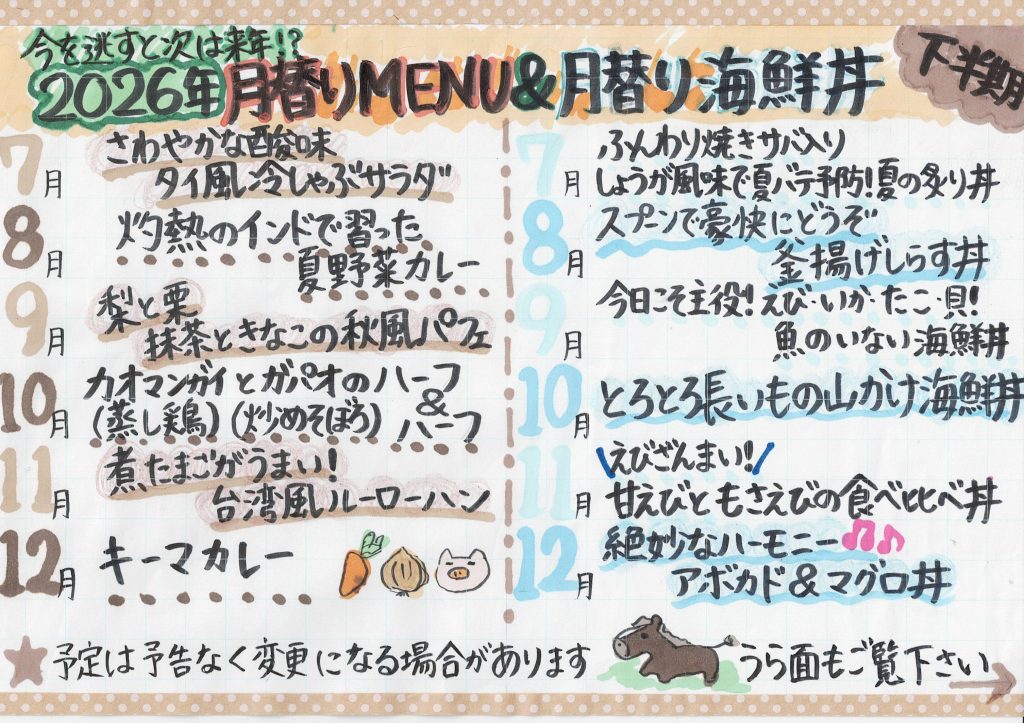 今を逃すと次は来年!?
2026年月替りMENU&月替り海鮮丼
下半期
7月
さわやかな酸味
タイ風冷しゃぶサラダ
8月
灼熱のインドで習った
夏野菜カレー
9月
梨と栗
抹茶ときなこの秋風パフェ
10月
カオマンガイとガパオのハーフ
(蒸し鶏)(炒めそぼろ)&ハーフ
11月
煮たまごがうまい!
台湾風ルーローハン
12月
キーマカレー
7月
ふんわり焼きサバ入り
しょうが風味で夏バテ予防!夏の炙り丼
8月
スプーンで豪快にどうぞ
釜揚げしらす丼
9月
今日こそ主役!えび・いか・たこ・貝!
魚のいない海鮮丼
10月
とろとろ長いもの山かけ海鮮丼
11月
\えびざんまい!/
甘えびともさえびの食べ比べ丼
12月
絶妙なハーモニー♫♪
アボカド&マグロ丼
★予定は予告なく変更になる場合があります
うら面もご覧下さい→